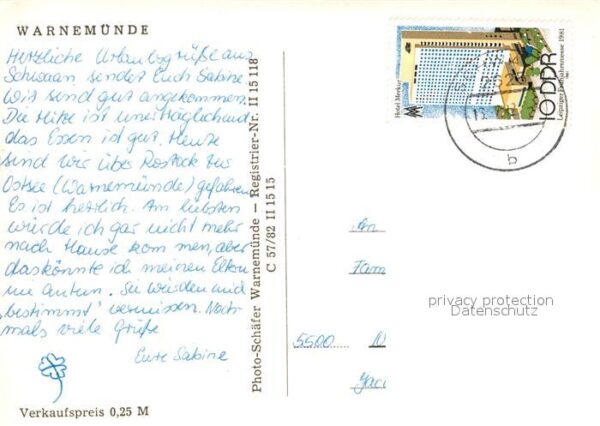 WARNEMÜNDE
Herzliche Urlaubsgrüße aus
Schwaan sendet Euch Sabine
Wir sind gut angekommen.
Die Hitze ist unerträglich und
das Essen ist gut. Heute
sind wir über Rostock zur
Ostsee (Warnemünde) gefahren
Es ist herrlich. Am liebsten
würde ich gar nicht mehr
nach Hause kommen, aber
das könnte ich meinen Eltern
nie antun. Sie würden mich
bestimmt vermissen. Noch
mals viele Grüße
Eure Sabine
Verkaufspreis 0,25 M
Photo-Schäfer Warnemünde — Registrier-Nr. II 15 118
C 57/82 II 15 15
Hotel Merkur
10 DDR
Leipziger Frühjahrsmesse 1981
b
An
Fam
5500 N
Jac
privacy protection
Datenschutz